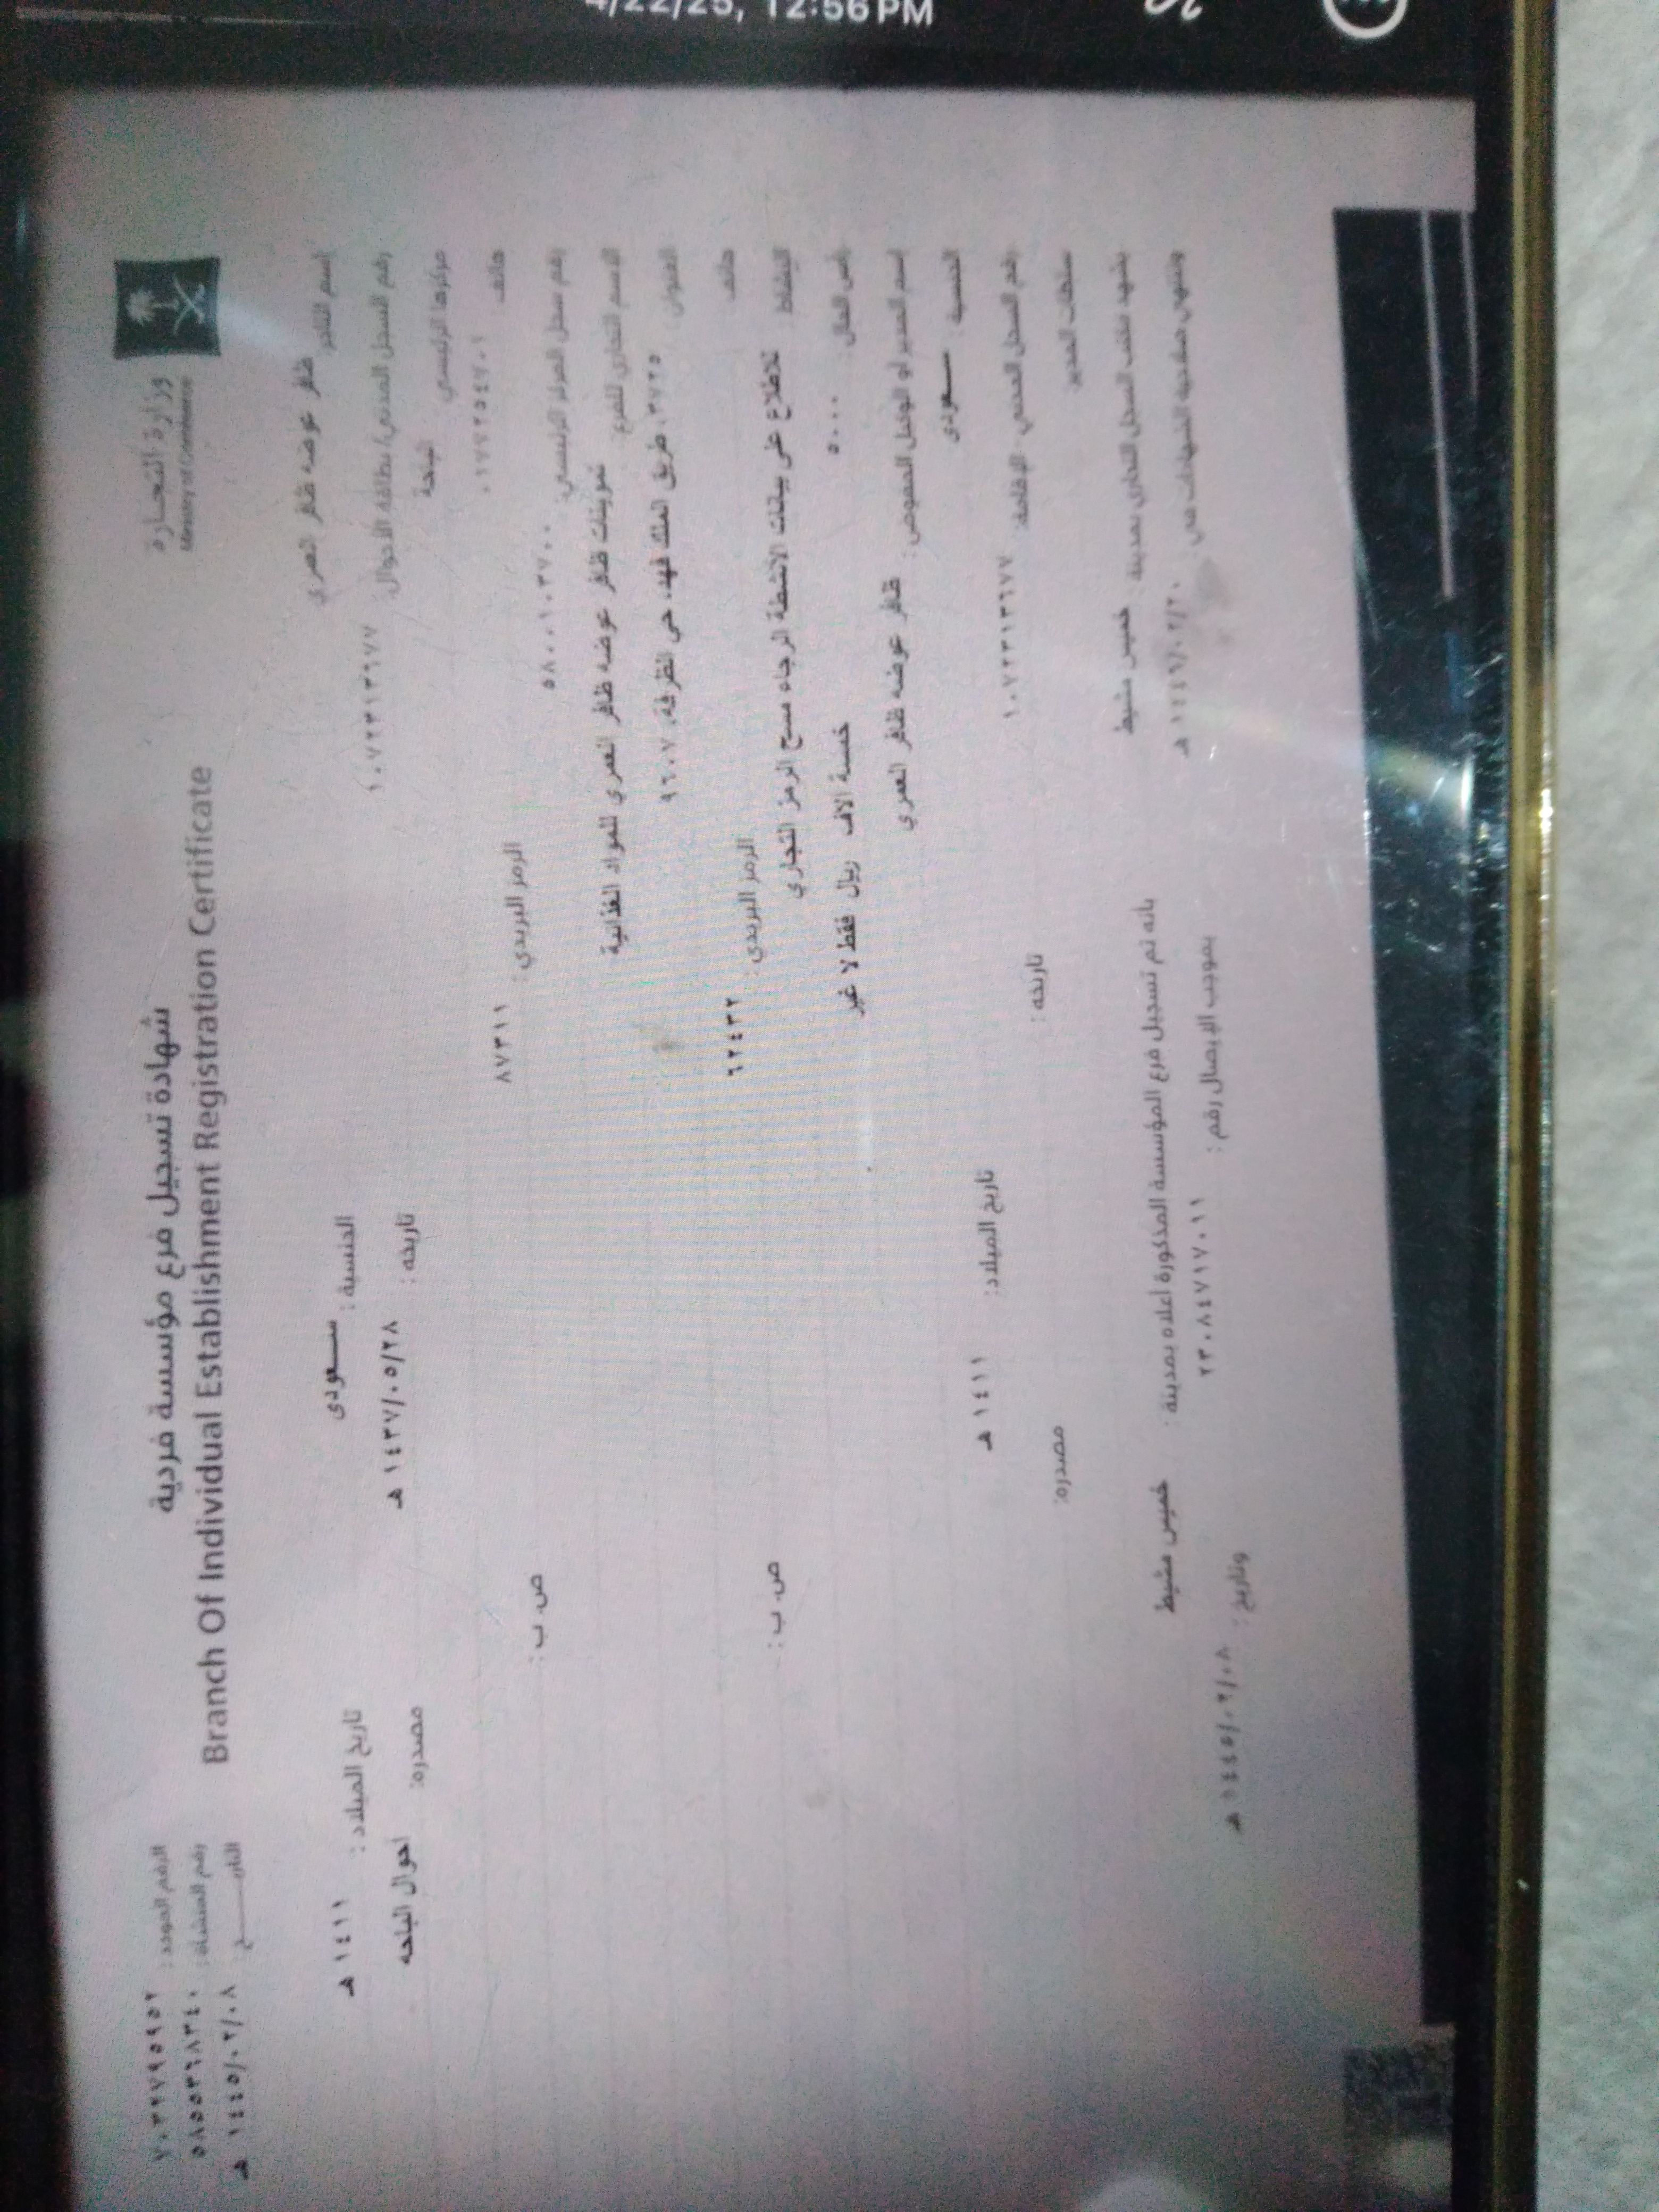 4/22/25, 12:56 PM
وزارة التجارة
Ministry of Commerce
شهادة تسجيل فرع مؤسسة فردية
Branch Of Individual Establishment Registration Certificate
الرقم الموحد :
رقم المنشاة : ٥٨٥٥٣٦٨٣٤٠
التاريـــــخ : ١٤٤٥/٠٢/٠٨ هـ
إسم التاجر: ظافر عوضه ظافر العمري الجنسية : سـعودى تاريخ الميلاد : ١٤١١ هـ
رقم السجل المدني/بطاقة الأحوال: ١٠٧٢٣١٣٦٧٧ تاريخه : ١٤٢٧/٠٥/٢٨ هـ مصدره: احوال الباحه
مركزها الرئيسي
هاتف: ٠١٧٧٢٥٤٧٠١ الرمز البريدي : ٨٧٣١١ ص. ب :
رقم سجل المركز الرئيسي:
الاسم التجاري للفرع: تموينات ظافر عوضه ظافر العمري للمواد الغذائية
العنوان : ٣٧٢٥، طريق الملك فهد، حي الظرفة، ٩٦٠٧
هاتف: الرمز البريدي : ٦٢٤٣٢ ص. ب :
النشاط : للاطلاع على بيانات الانشطة الرجاء مسح الرمز التجاري
رأس المال : ٥٠٠٠ خمسة الاف ريال فقط لا غير
إسم المدير أو الوكيل المفوض : ظافر عوضه ظافر العمري
الجنسية : سـعودى تاريخ الميلاد: ١٤١١ هـ
رقم السجل المدني - الإقامة: ١٠٧٢٣١٣٦٧٧ تاريخه : مصدره:
سلطات المدير:
يشهد مكتب السجل التجاري بمدينة : خميس مشيط بأنه تم تسجيل فرع المؤسسة المذكورة أعلاه بمدينة : خميس مشيط
وتنتهي صلاحية الشهادة في : ١٤٤٦/٠٢/٢٠ هـ بموجب الإيصال رقم : ٢٣٠٨٤٧١٧٠١١ وتاريخ : ١٤٤٥/٠٢/٠٨ هـ